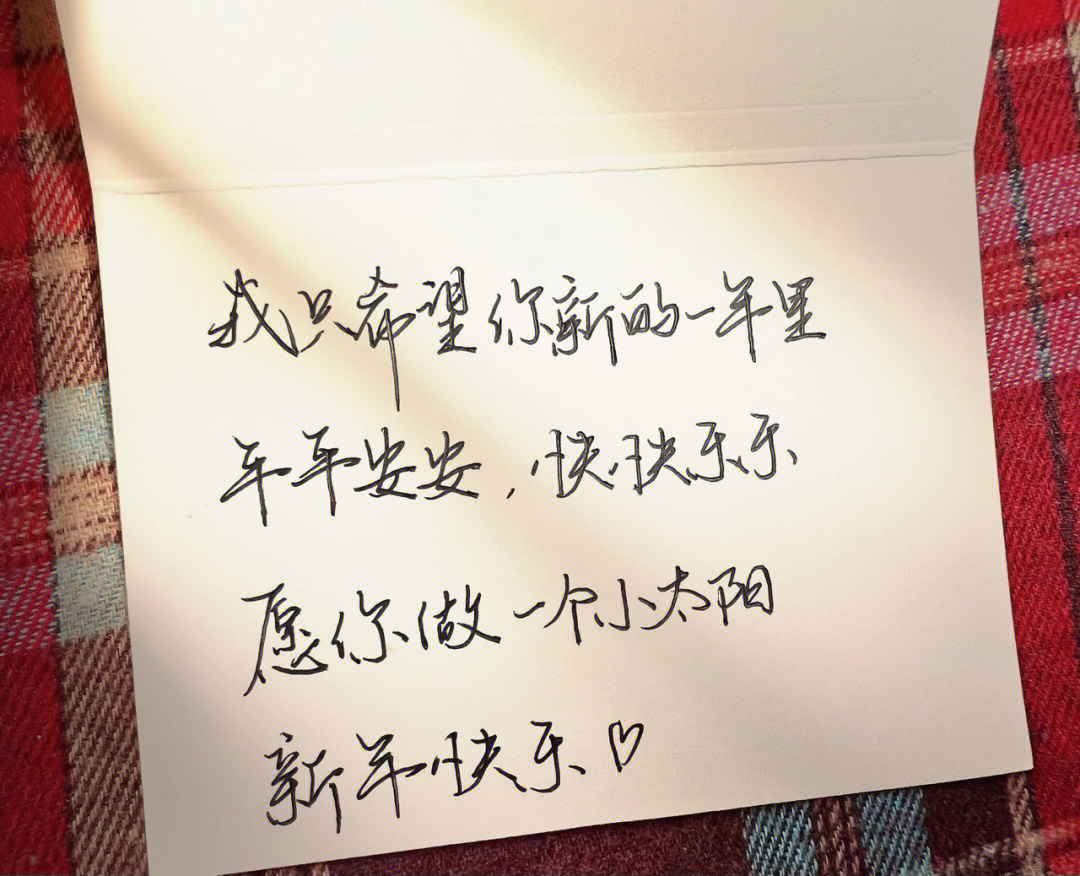 我只希望你新的一年里
平平安安，快快乐乐
愿你做一个小太阳
新年快乐♡